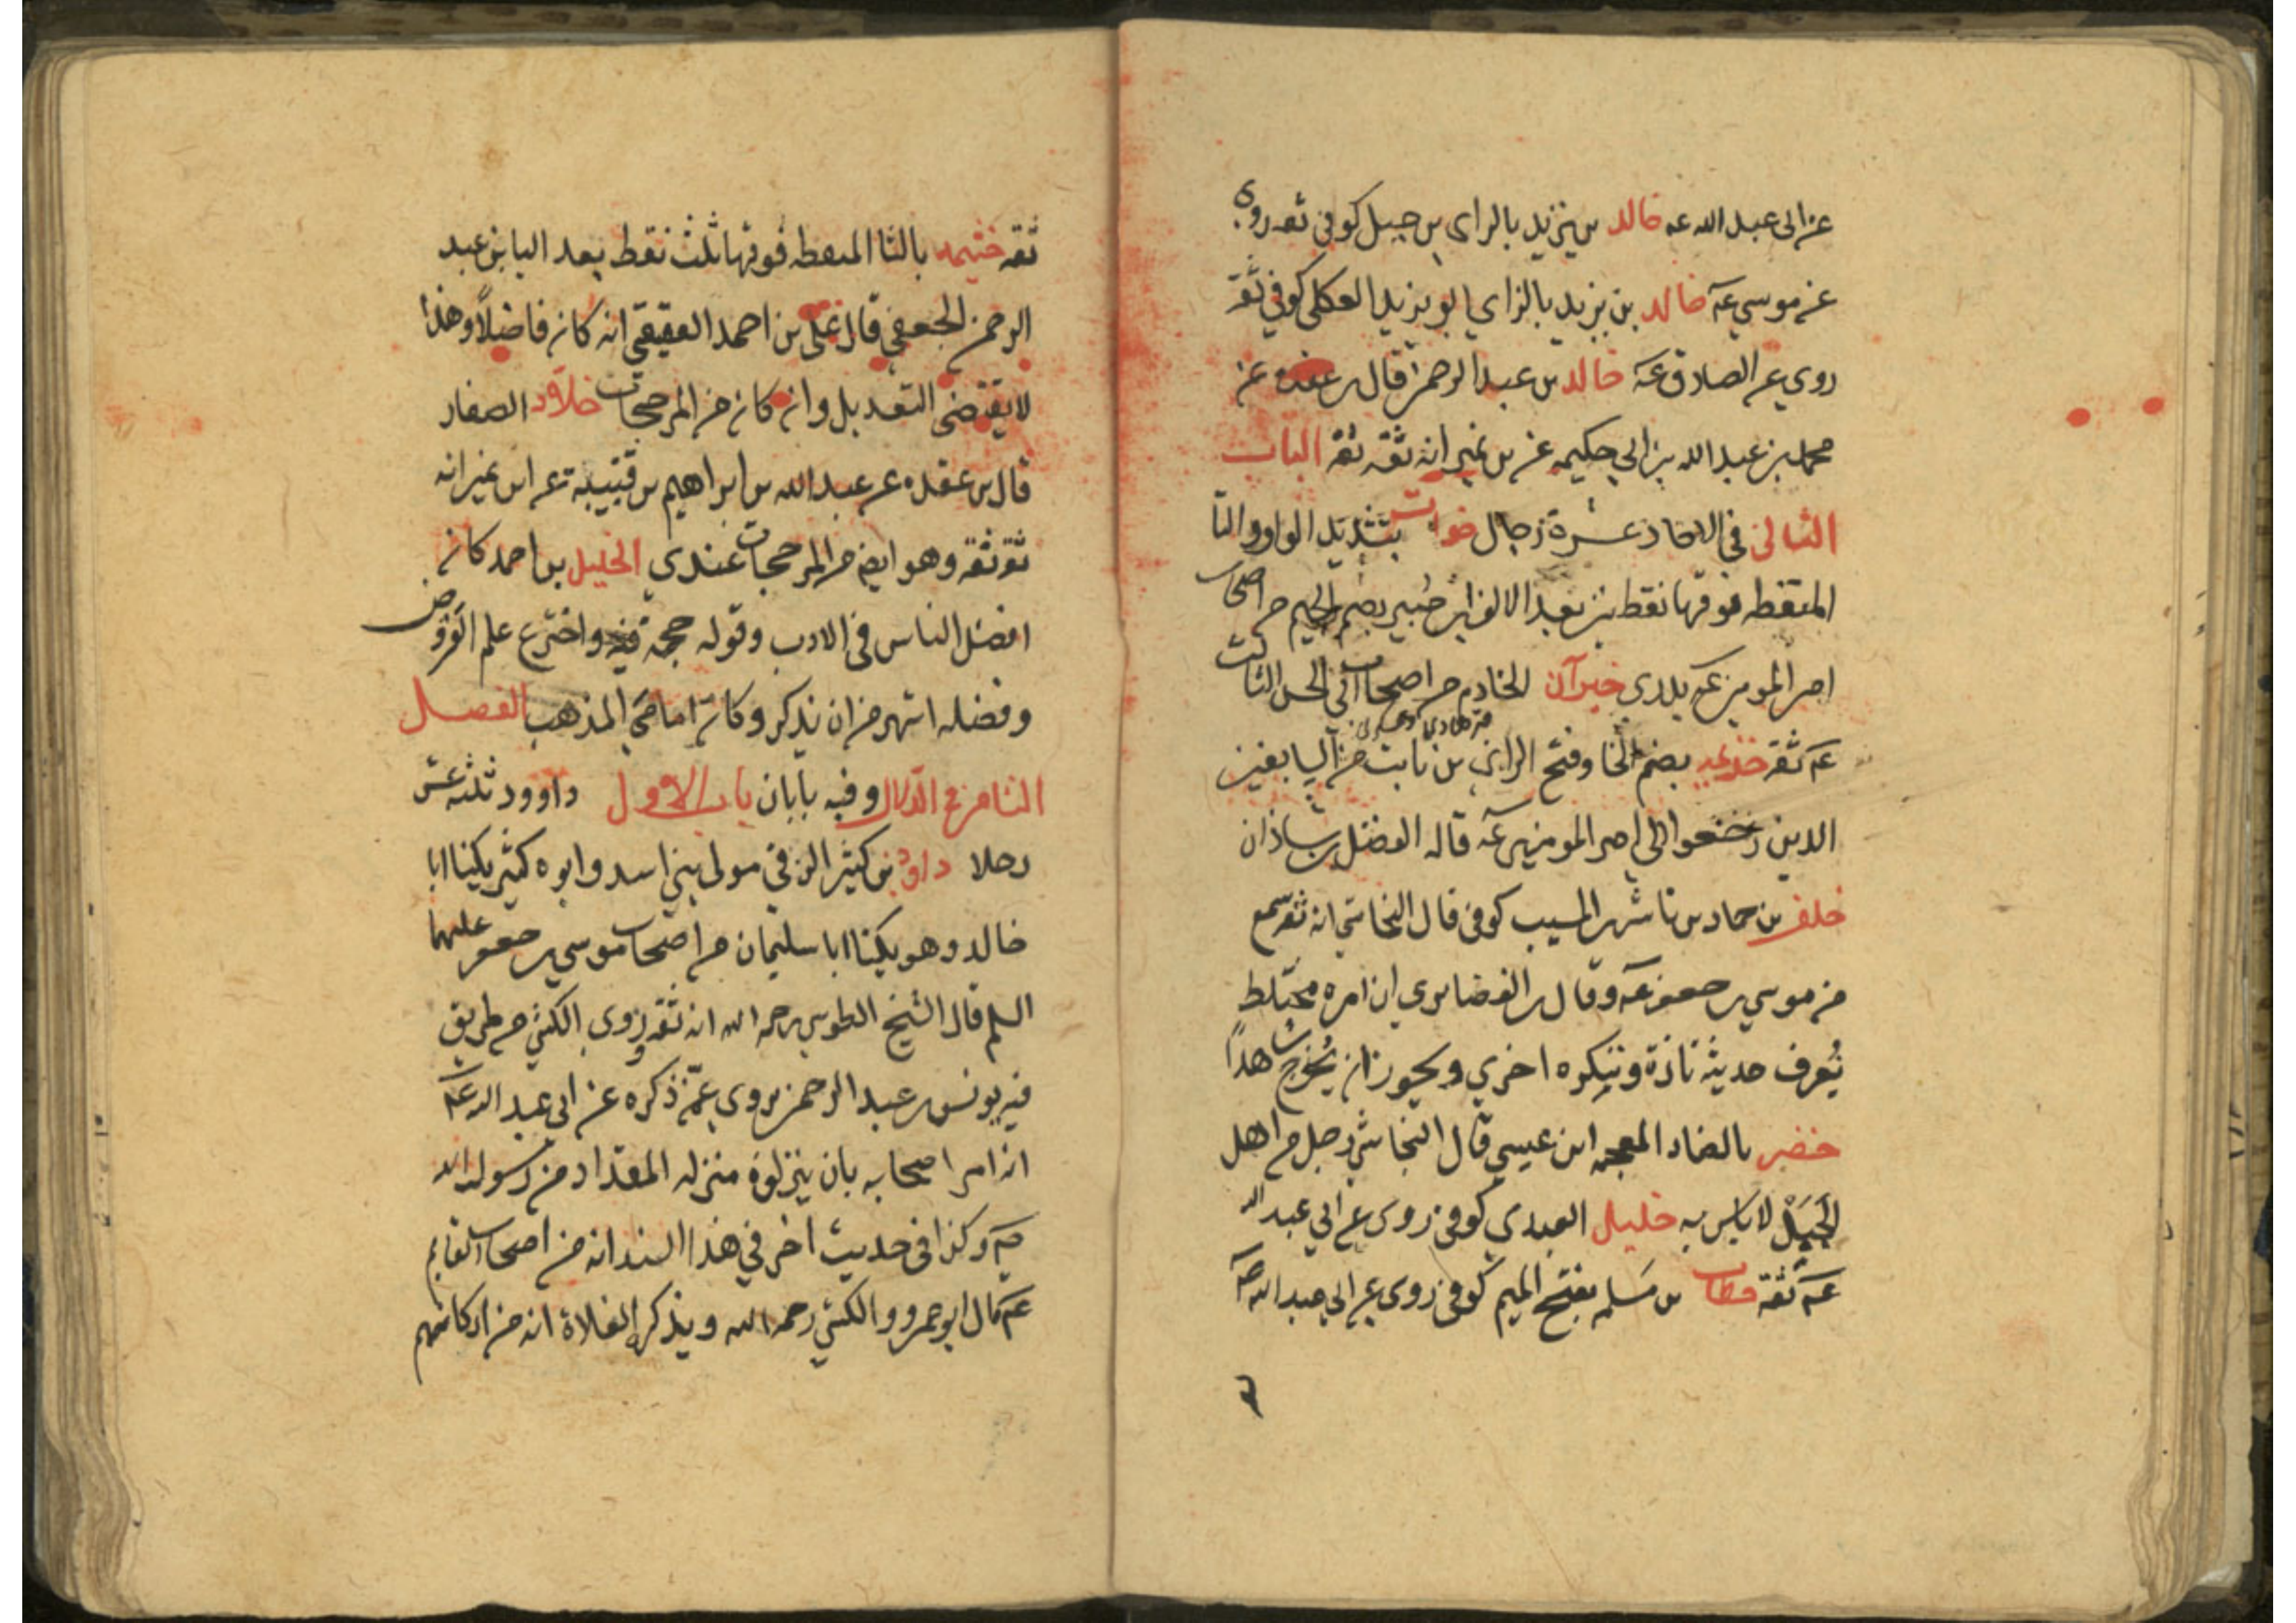 عن ابى عبد الله عه خالد بن يزيد بالزاى بن جبل كوفى ثقه روى
عن موسى عه خالد بن يزيد بالزاي ابو يزيد العكلى كوفي ثقة
روى عن الصادق عه خالد بن عبد الرحمن قال بن عقده عن
محمد بن عبد الله بن ابي حكيمه عن بن نمير انه ثقه ثقه الباب
الثانى في الاحاد عشرة رجال خوات بتشديد الواو والتا
المنقطه فوقها نقطتين بعد الالف ابن جُبير بضم الجيم من اصحاب
امير المومنين عه بدرى خيران الخادم من اصحاب ابى الحسن الثالث
عه ثقة خزيمه بضم الخا وفتح الزاى بن ثابت من السابقين
الذين رجعوا الى امير المومنين عه قاله الفضل بن شاذان
خلف بن حماد بن ناشر بن المسيب كوفى قال النجاشي انه ثقه سمع
من موسى بن جعفر عه وقال بن الغضايرى ان امره مختلط
نُعرف حديثه تارة وننكره اخري ويجوز ان يُخرج شاهدًا
خضر بالضاد المعجمه ابن عيسي قال النجاشي رجل من اهل
الجَبَل لا باس به خليل العبدي كوفى روى عن ابي عبد الله
عه ثقة خطاب بن مَسلمه بفتح الميم كوفى روى عن ابي عبد الله عه
ثقه خثيمه بالثا المنقطه فوقها ثلث نقط بعد اليا بن عبد
الرحمن الجعفي قال على بن احمد العقيقي انه كان فاضلاً وهذا
لا يقتضى التعديل وان كان من المرجحات خلاد الصفار
قال بن عقده عن عبد الله بن ابراهيم بن قتيبة عن ابن نمير انه
ثقة ثقة وهو ايضا من المرجحات عندي الخليل بن احمد كان
افضل الناس فى الادب وقوله حجة فيه واخترع علم العروض
وفضله اشهر من ان يذكر وكان امامي المذهب الفصل
الثامن فى الدال وفيه بابان باب الاول داوود ثلثه عشر
رجلا داود بن كثير الرقي مولى بني اسد وابوه كثير يكنا ابا
خالد وهو يكنا ابا سليمان من اصحاب موسى بن جعفر عليهما
السلم قال الشيخ الطوسى رحمه الله انه ثقه روى الكشي من طريق
فيه يونس بن عبد الرحمن يروى عمّن ذكره عن ابى عبد الله عه
انه امر اصحابه بان ينزلوه منزله المقداد من رسول الله
صه وكذا فى حديث اخر في هذا السند انه من اصحاب القايم
عه قال ابو عمرو والكشي رحمه الله ويذكر الغلاة انه من اركانهم